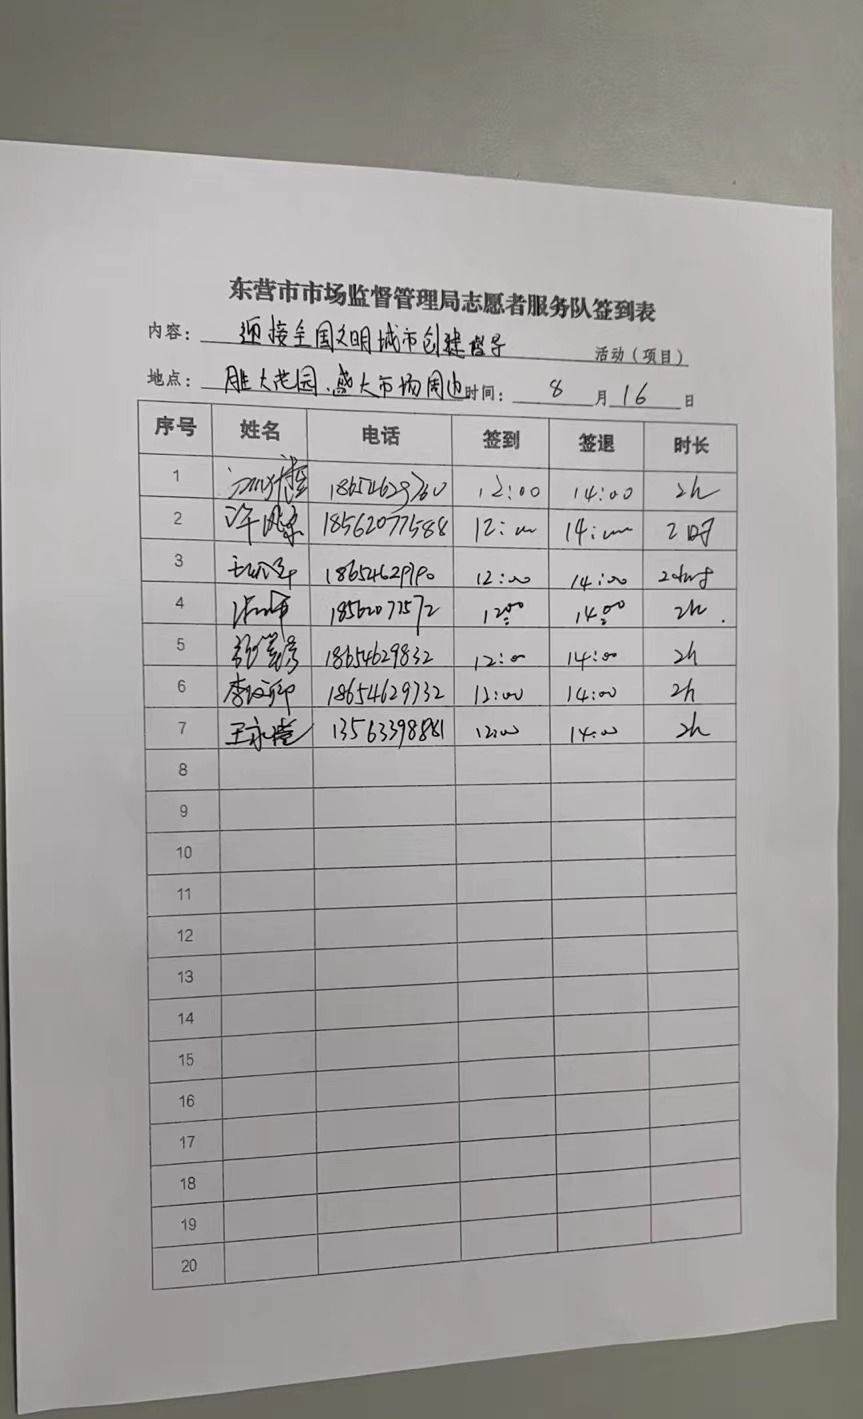 东营市市场监督管理局志愿者服务队签到表
内容: 迎接全国文明城市创建督导 活动(项目)
地点: 胜大花园、盛大市场周边 时间: 8 月 16 日
序号 姓名 电话 签到 签退 时长
1 18654629760 12:00 14:00 2h
2 18562077588 12:00 14:00 2时
3 18654629790 12:00 14:00
4 18562072572 12:00 14:00 2h.
5 18654629832 12:00 14:00 2h
6 18654629732 12:00 14:00 2h
7 王永 13563398881 12:00 14:00 2h
8
9
10
11
12
13
14
15
16
17
18
19
20